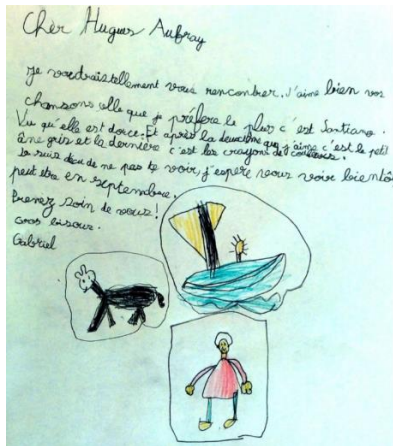 Chèr Hugues Aufray
je voudrais tellement vous rencontrer. J'aime bien vos
chansons celle que je préfère le plus c'est Santiano.
Vu qu'elle est douce. Et après la deuxième que j'aime c'est le petit
âne gris et la dernière c'est les crayons de couleurs.
Je suis deçu de ne pas te voir j'espere vous voir bientôt
peut être en septembre.
Prenez soin de vous!
Gros bisous.
Gabriel